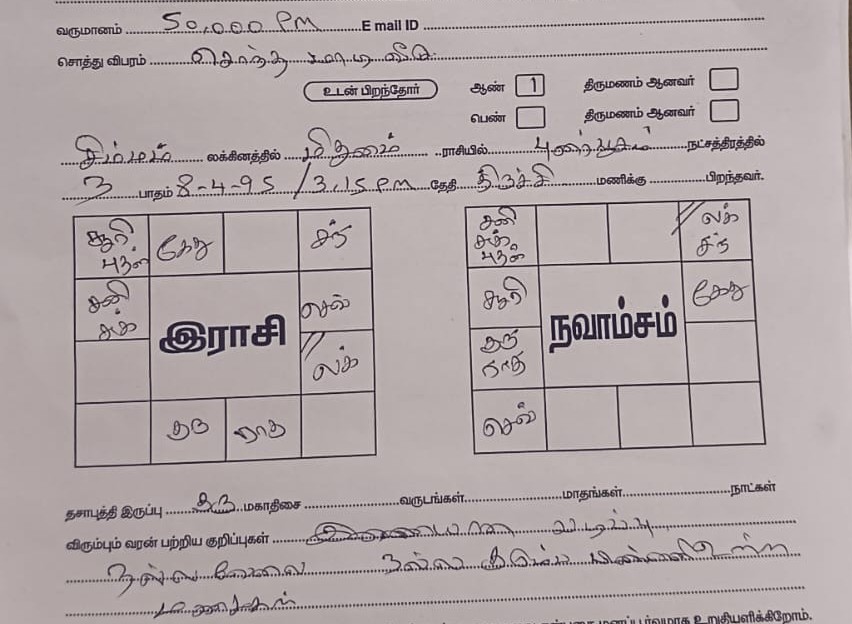 வருமானம் 50,000 PM E mail ID
சொத்து விபரம் சொந்த மாடி வீடு
உடன் பிறந்தோர் ஆண் 1 திருமணம் ஆனவர்
பெண் திருமணம் ஆனவர்
சிம்மம் லக்கினத்தில் மிதுனம் ராசியில் புனர்பூசம் நட்சத்திரத்தில்
3 பாதம் 8-4-95 / 3.15 PM தேதி திருச்சி மணிக்கு பிறந்தவர்.
சூரி புதன் கேது சந்
சனி சுக் செவ்
இராசி
லக்
குரு ராகு
சனி சுக் புதன் லக் சந்
சூரி கேது
நவாம்சம்
குரு ராகு
செவ்
தசாபுத்தி இருப்பு குரு மகாதிசை வருடங்கள் மாதங்கள் நாட்கள்
விரும்பும் வரன் பற்றிய குறிப்புகள் இணையான படிப்பு
நல்ல வேலை நல்ல குடும்ப பின்னணி உள்ள
மணமகன்
உறுதியளிக்கிறோம்.